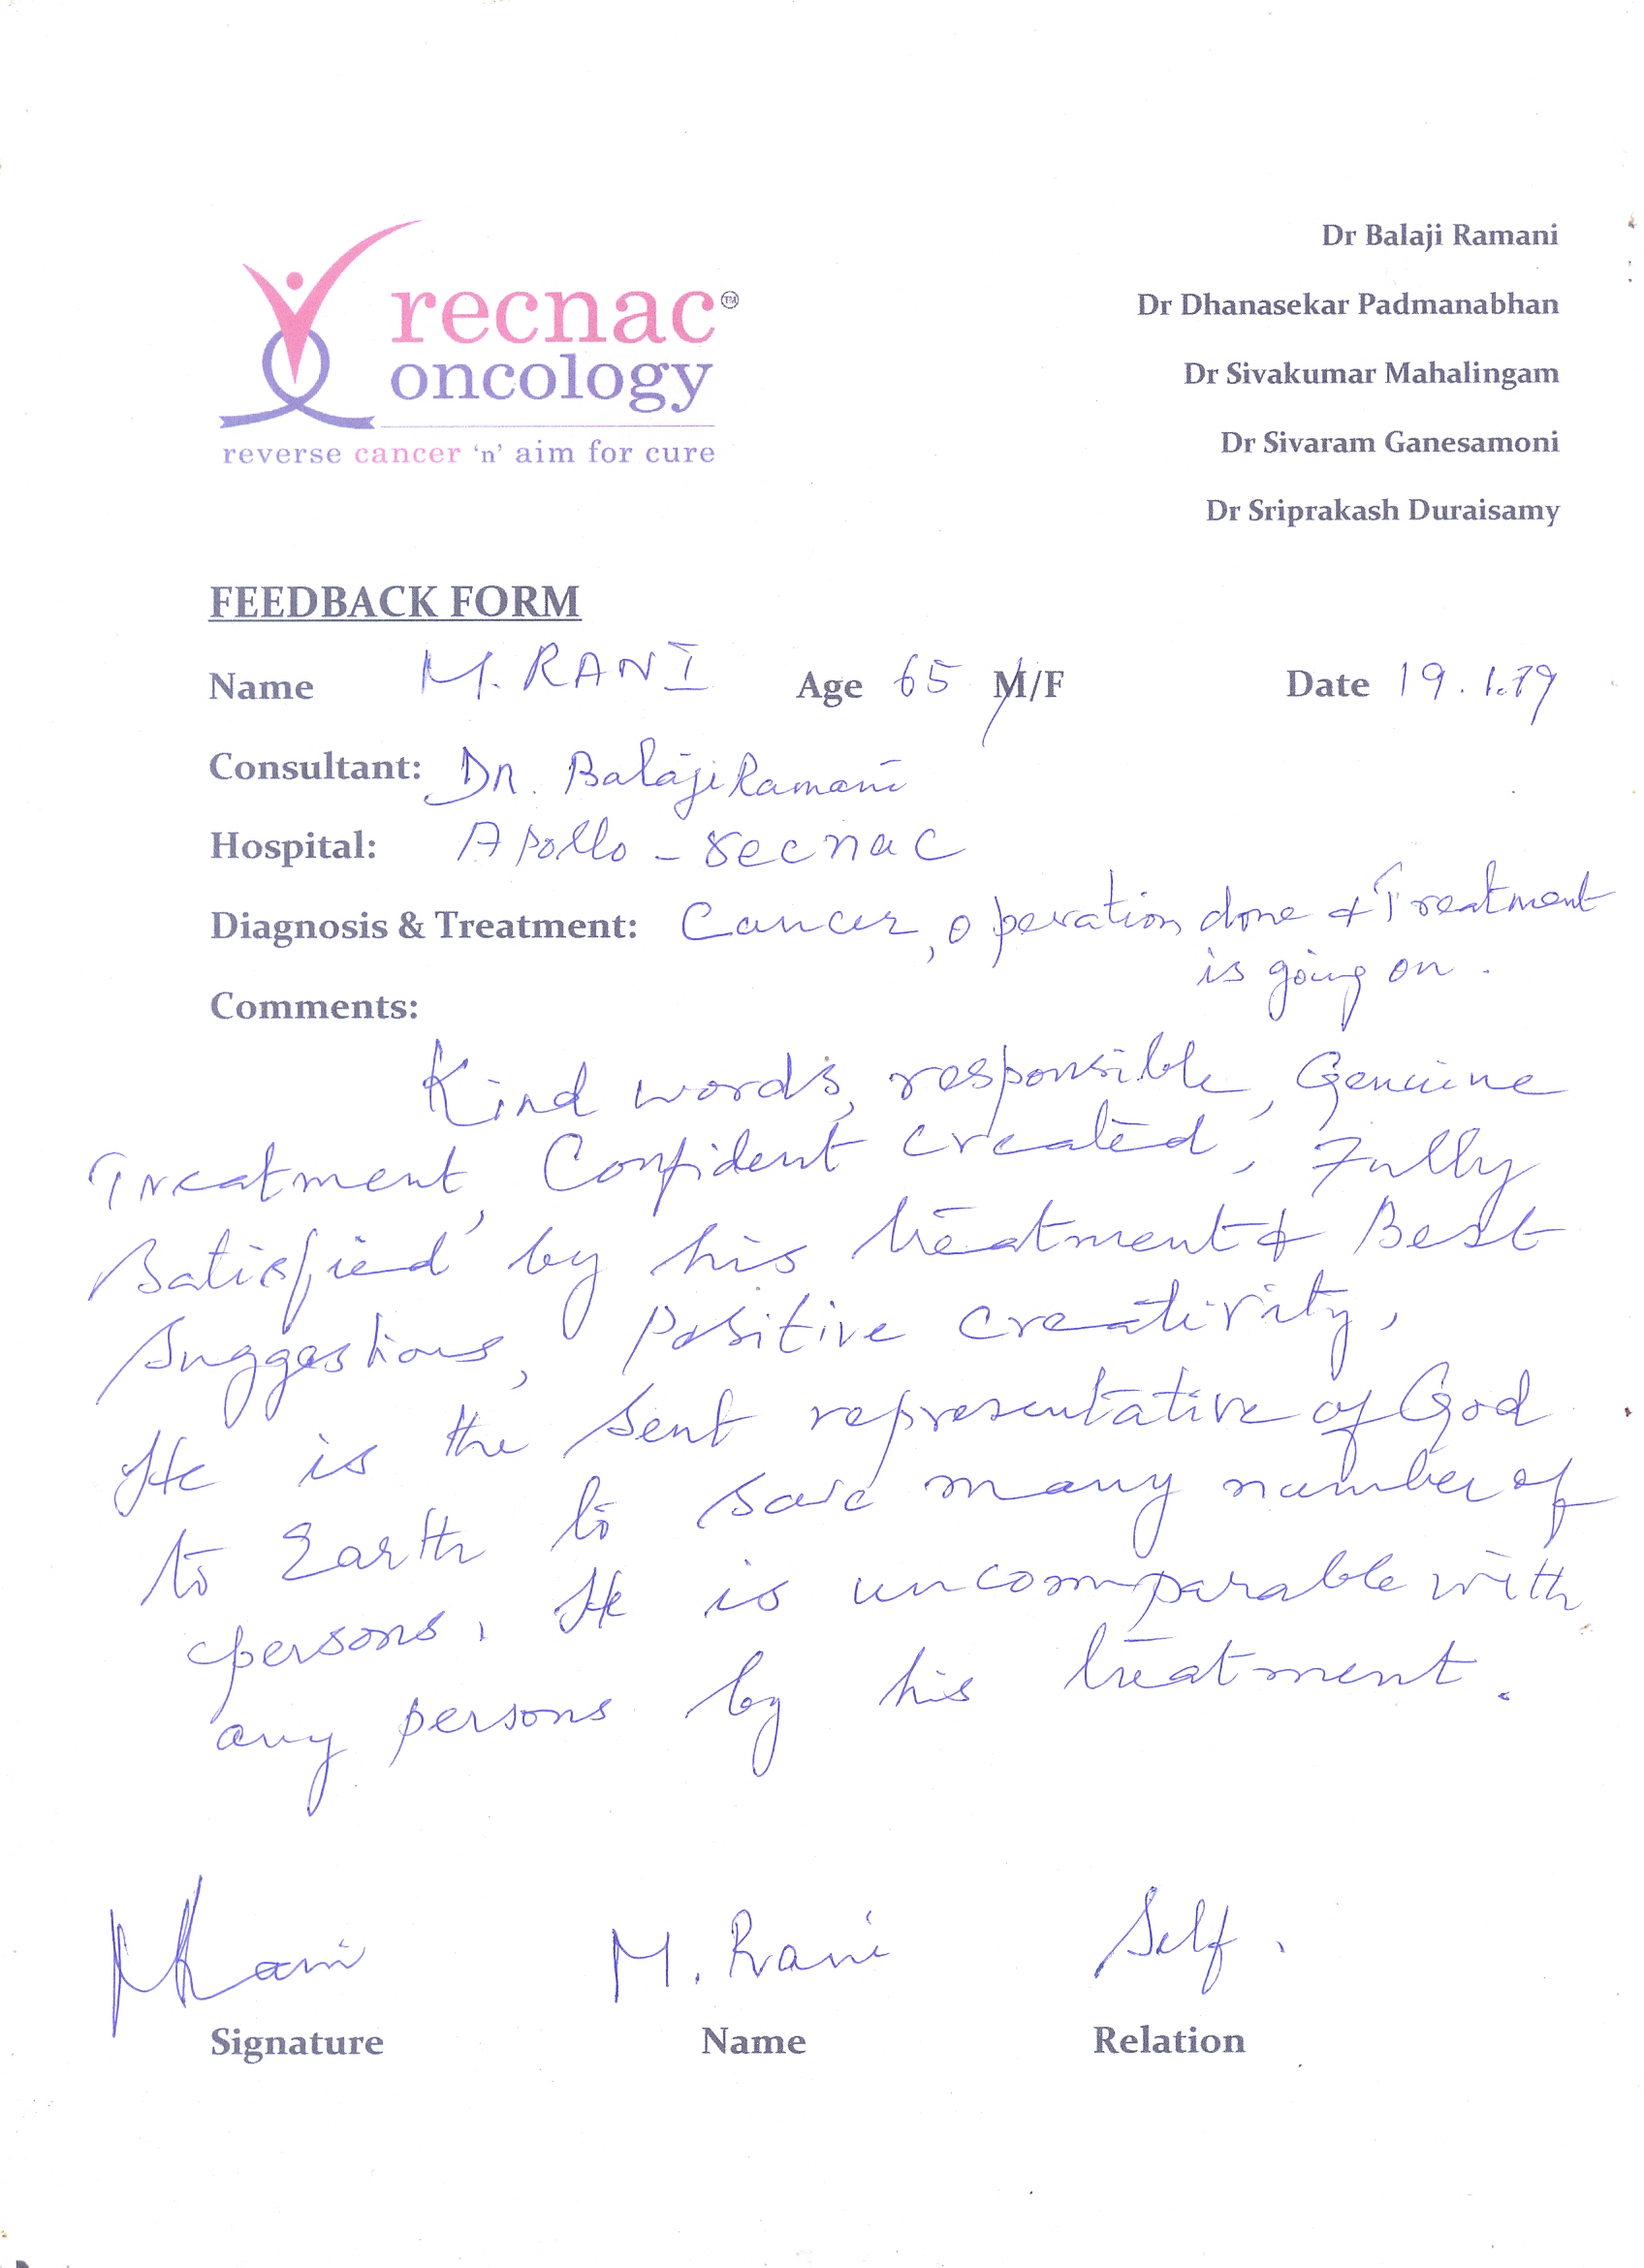 recnac™
oncology
reverse cancer 'n' aim for cure
Dr Balaji Ramani
Dr Dhanasekar Padmanabhan
Dr Sivakumar Mahalingam
Dr Sivaram Ganesamoni
Dr Sriprakash Duraisamy
FEEDBACK FORM
Name M. RANI Age 65 M/F Date 19.1.19
Consultant: Dr. Balaji Ramani
Hospital: Apollo - recnac
Diagnosis & Treatment: Cancer, operation done & Treatment
is going on.
Comments:
Kind words, responsible, Genuine
Treatment, Confident created, Fully
Satisfied by his treatment & Best
Suggestions, Positive creativity,
He is the sent representative of God
to Earth to save many number of
persons. He is uncomparable with
any persons by his treatment.
MRani M. Rani Self.
Signature Name Relation